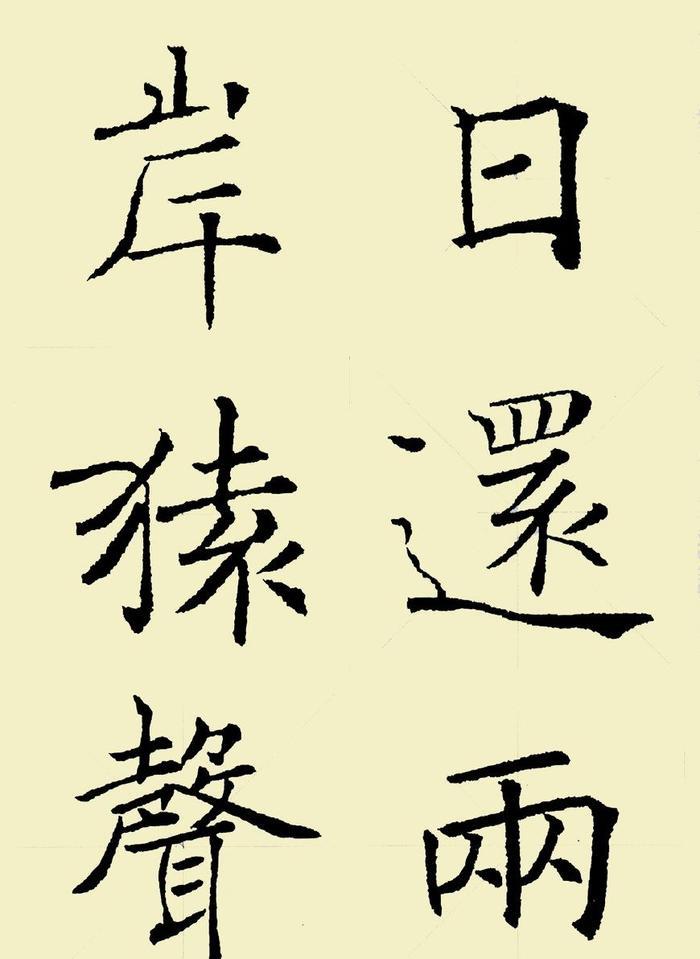 日還兩
岸猿聲